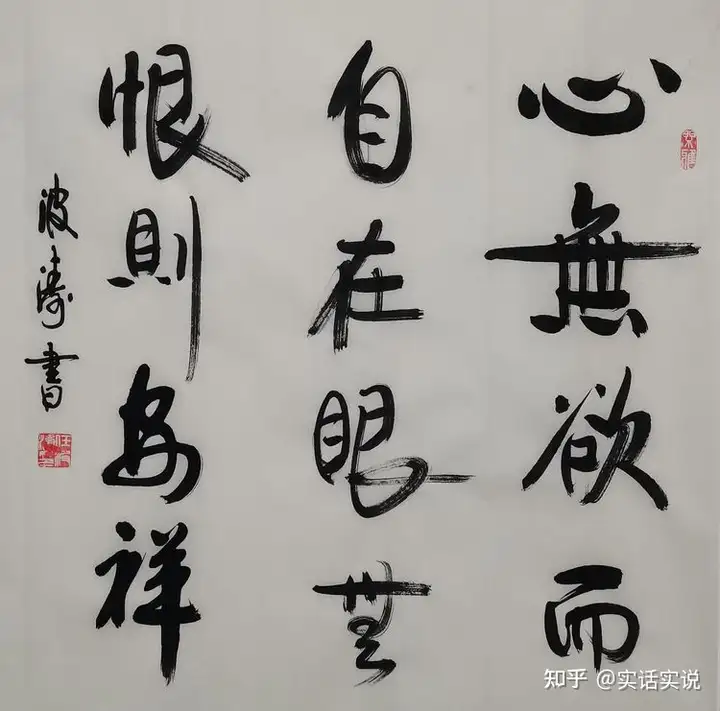 心無欲而
自在眼無
恨則安祥
波濤書
知乎 @实话实说